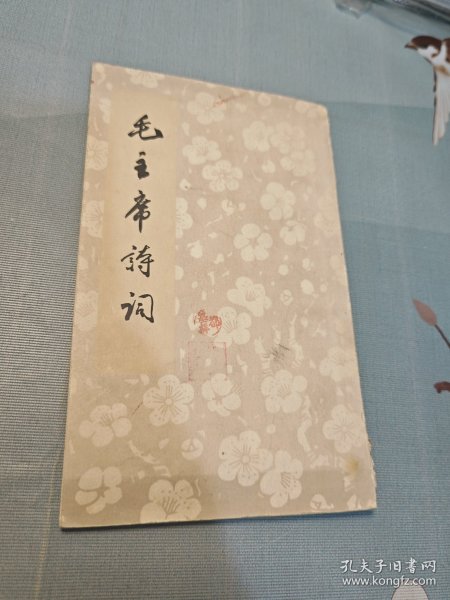 毛主席詩詞
孔夫子旧书网
www.kongfz.com